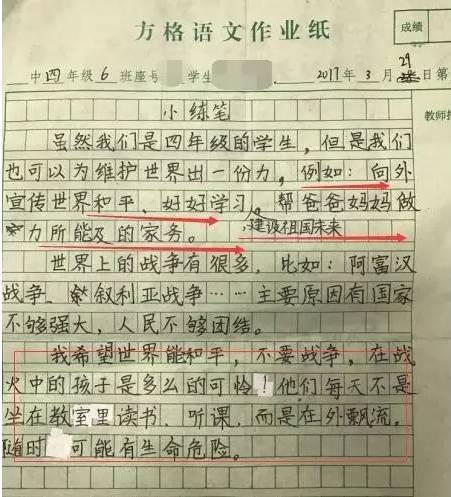 方格语文作业纸
成绩
中四年级6班座号 学生 2017年3月29日第
教师
小练笔
虽然我们是四年级的学生，但是我们
也可以为维护世界出一份力，例如：向外
宣传世界和平、好好学习、帮爸爸妈妈做
力所能及的家务。建设祖国未来
世界上的战争有很多，比如：阿富汉
战争、叙利亚战争……主要原因有国家
不够强大，人民不够团结。
我希望世界能和平，不要战争，在战
火中的孩子是多么的可怜！他们每天不是
坐在教室里读书、听课，而是在外飘流，
随时 可能有生命危险。